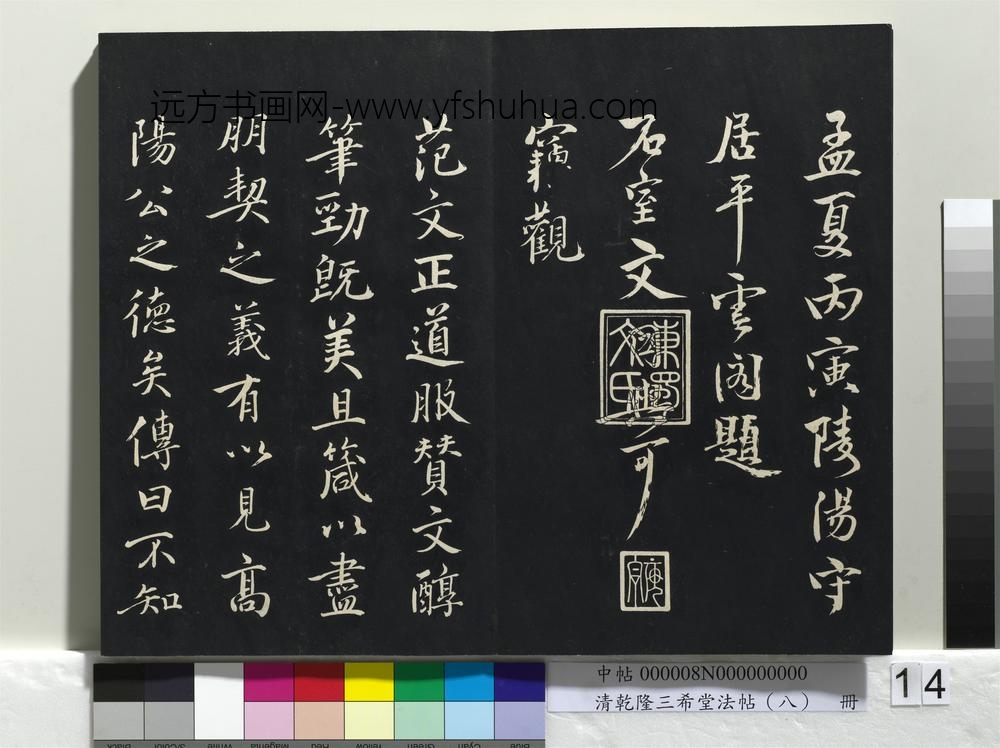 孟夏丙寅陵陽守
居平雲閣題
石室文
東蜀文氏
同
與可
寶觀
范文正道服贊文醇
筆勁既美且箴以盡
朋契之義有以見高
陽公之德矣傳曰不知
远方书画网-www.yfshuhua.com
中帖 000008N000000000
清乾隆三希堂法帖(八) 冊
14
Black
3/Color
White
Magenta
Red
Yellow
Green
Cyan
Blue